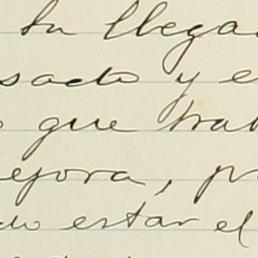 tu llega
sado y e
que trab
ejora, p
do estar el